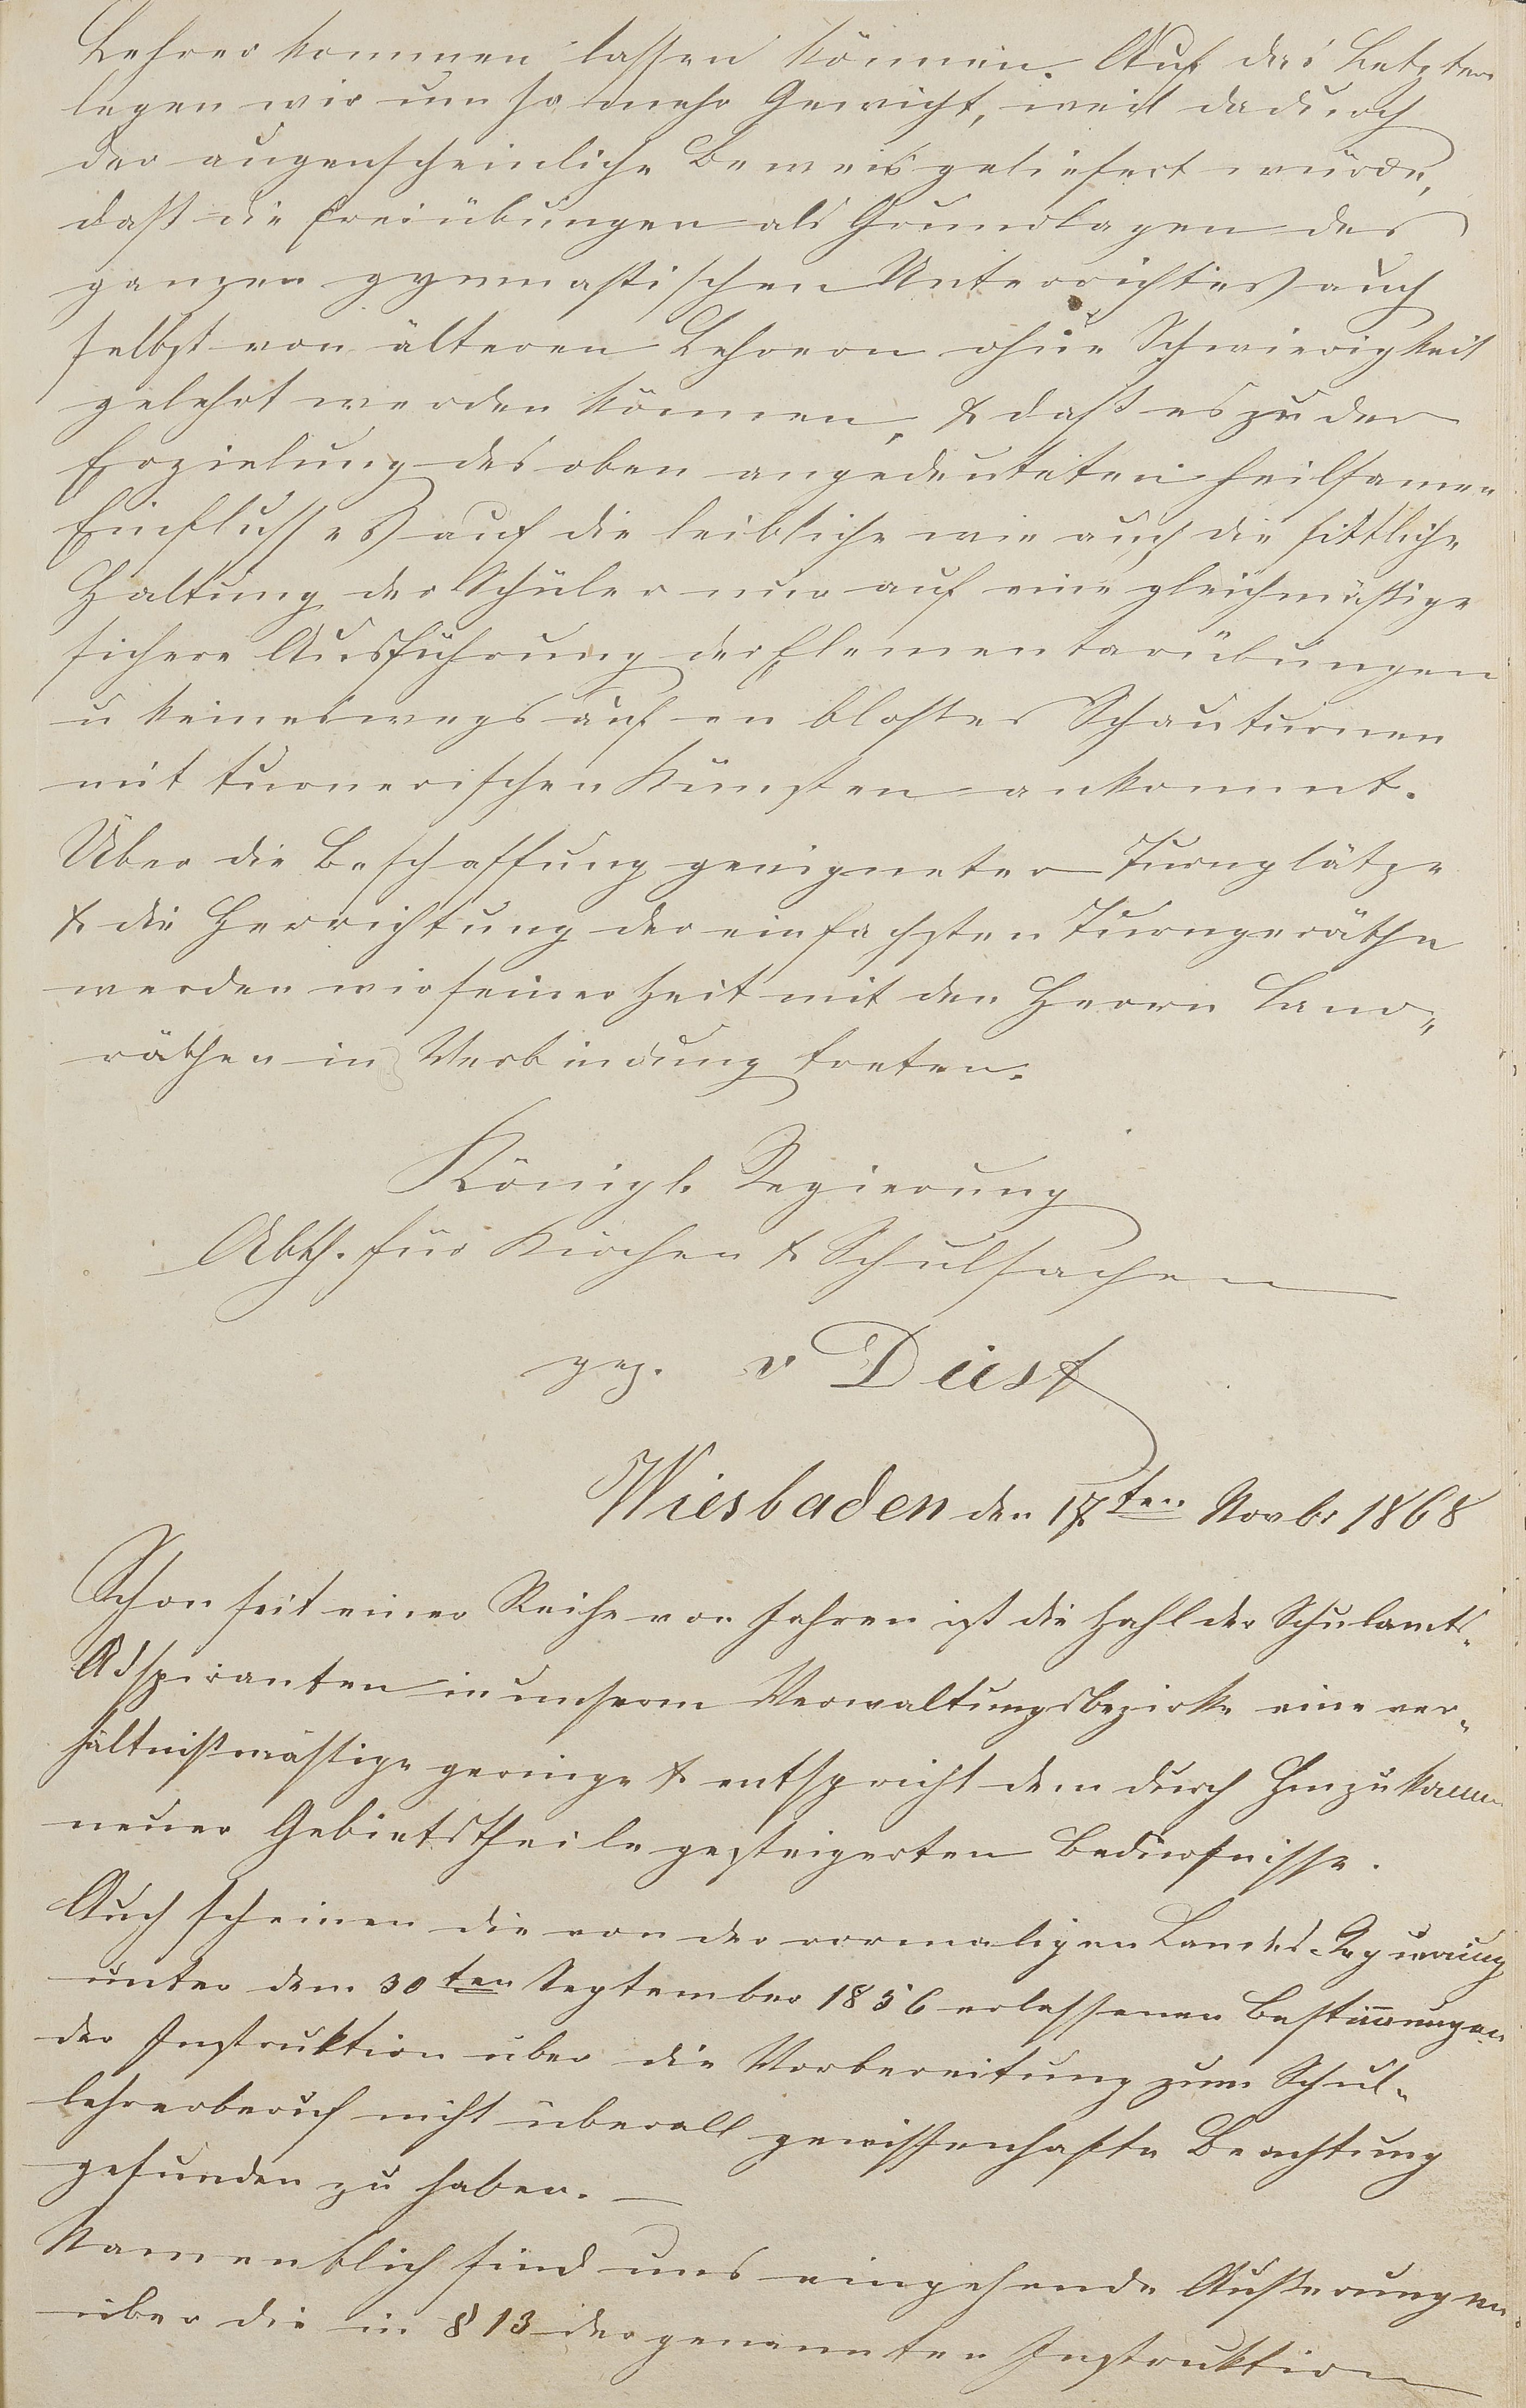 Lehrer kommen lassen können. Auf das Letztere
legen wir um so mehr Gewicht, weil dadurch
der augenscheinliche Beweis geliefert würde,
daß die Freiübungen als Grundlagen des
ganzen gymnastischen Unterrichtes auch
selbst von älteren Lehrern ohne Schwierigkeit
gelehrt werden können, & daß es zu der
Erzielung des oben angedeuteten heilsamen
Einflusses auf die leibliche wie auch die sittliche
Haltung der Schüler nur auf eine gleichmäßige
sichere Ausführung der Elementarübungen
u keineswegs auf en bloßes Schauturnen
mit turnerischen Künsten ankommt.
Über die Beschaffung geeigneter Turnplätze
& die Herrichtung der einfachsten Turngeräthe
werden wir seiner Zeit mit den Herrn Land„
räthen in Verbindung treten.
Königl. Regierung
Abth. für Kirchen & Schulsachen
gez. v Düst
Wiesbaden den 17ten Novbr 1868
Schon seit einer Reihe von Jahren ist die Zahl der Schulamts„
Adspiranten in unserm Verwaltungsbezirke eine ver„
hältnißmäßige geringe & entspricht dem durch Hinzukomm
neuer Gebietstheile gesteigerten Bedürfnisse.
Auch scheinen die von der vormaligen Landes-Regierung
unter dem 30ten September 1856 erlassenen Bestimmungen
der Instruktion über die Vorbereitung zum Schul„
lehrerberuf nicht überall gewissenhafte Beachtung
gefunden zu haben. —
Namentlich sind uns eingehende Äußerungen
über die in § 13 der genannten Instruktion